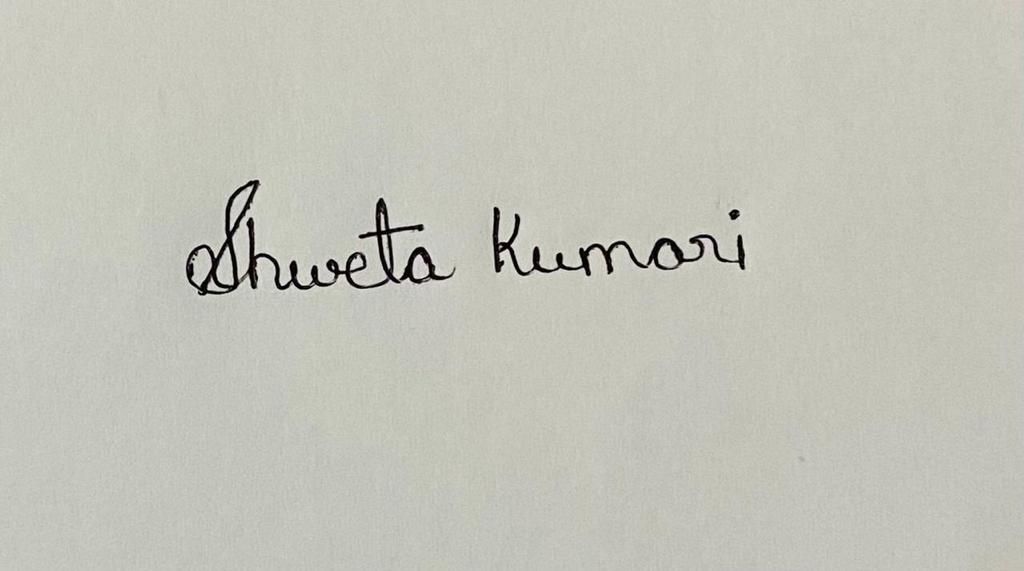 Shweta Kumari